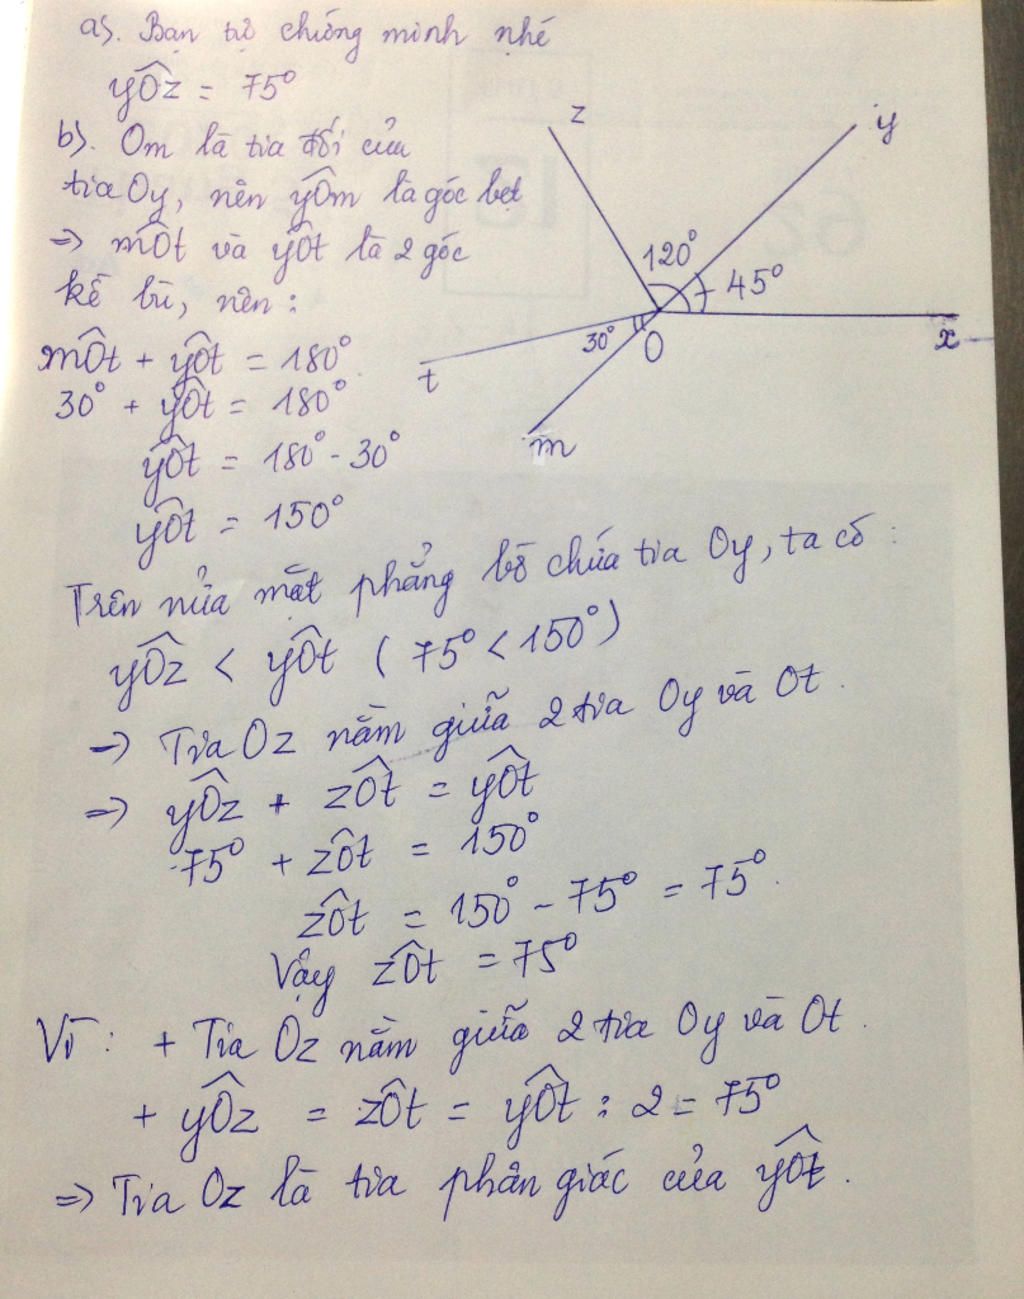 a). Bạn tự chứng minh nhé
yÔz = 75°
b). Om là tia đối của
tia Oy, nên yÔm là góc bẹt
=> mÔt và yÔt là 2 góc
kề bù, nên :
mÔt + yÔt = 180°
30° + yÔt = 180°
yÔt = 180° - 30°
yÔt = 150°
z
y
120°
45°
x
30°
O
t
m
Trên nửa mặt phẳng bờ chứa tia Oy, ta có :
yÔz < yÔt ( 75° < 150° )
-> Tia Oz nằm giữa 2 tia Oy và Ot .
=> yÔz + zÔt = yÔt
75° + zÔt = 150°
zÔt = 150° - 75° = 75° .
Vậy zÔt = 75°
Vì : + Tia Oz nằm giữa 2 tia Oy và Ot .
+ yÔz = zÔt = yÔt : 2 = 75°
=> Tia Oz là tia phân giác của yÔt .